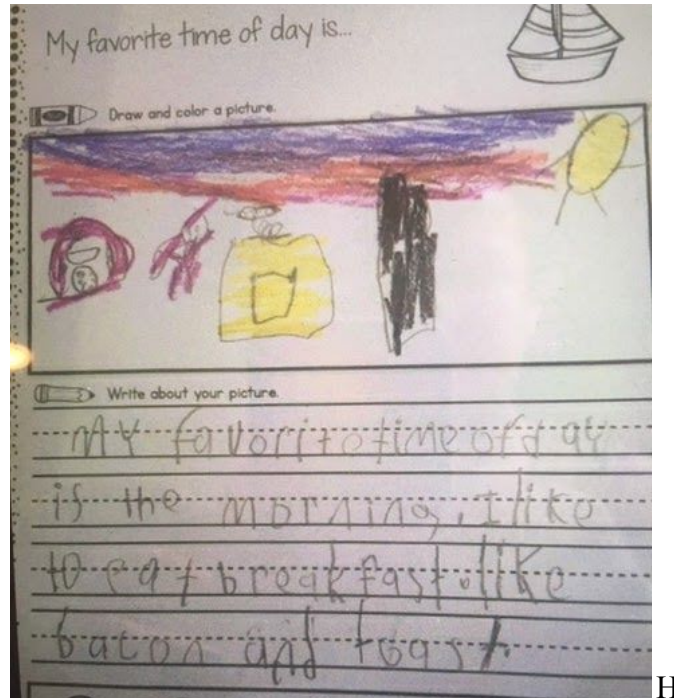 My favorite time of day is...
Draw and color a picture.
Write about your picture.
MY favorite time of day
is the morning. I like
to eat breakfast. like
bacon and toast.
H